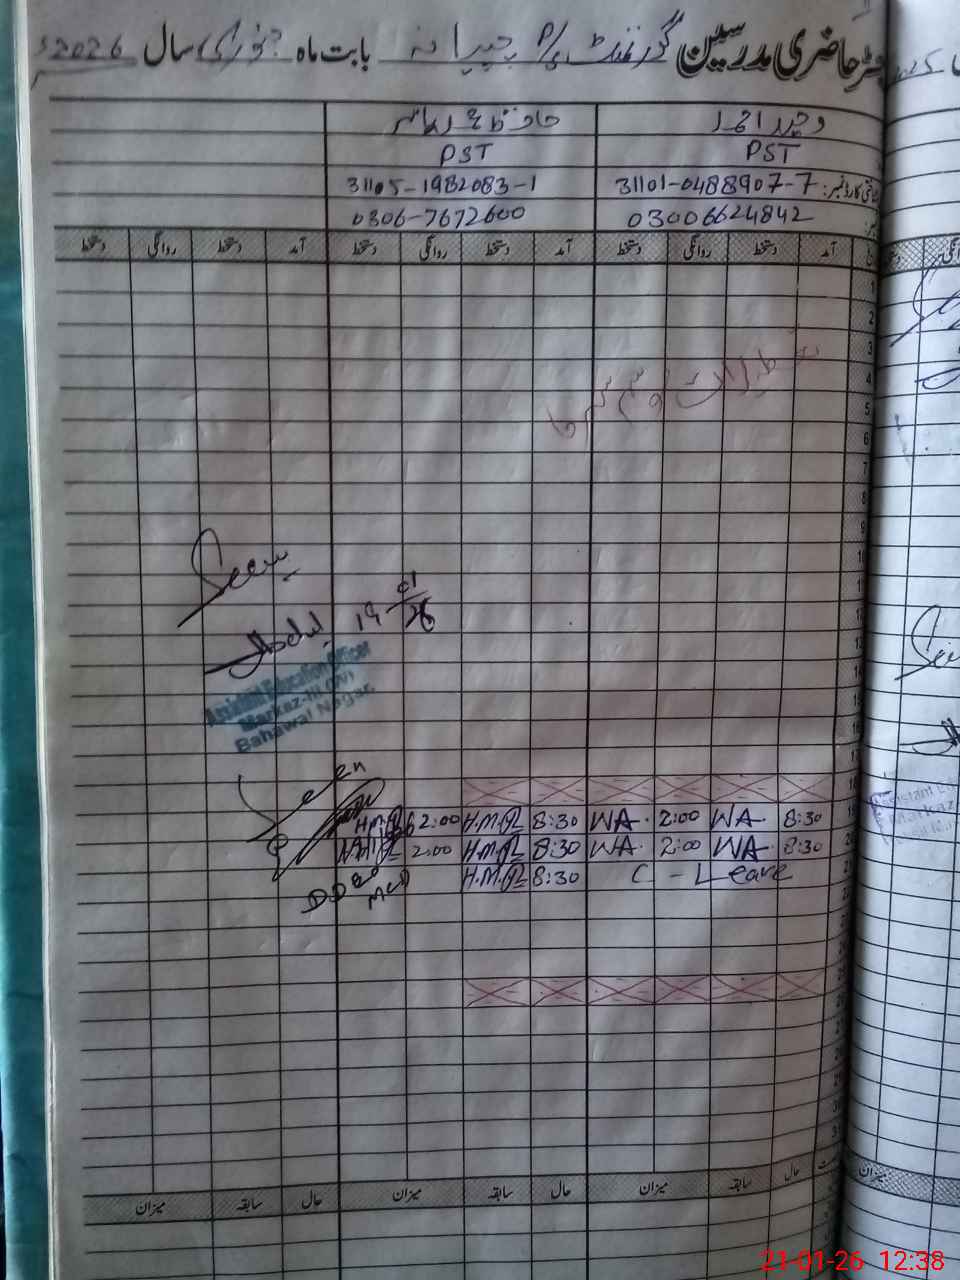 حاضری مدرسین گورنمنٹ P/S بابت ماہ جنوری سال 2026
وحید احمد حافظ محمد
PST PST
31101-0488907-7 31105-1982083-1
03006624842 0306-7672600
آمد دستخط روانگی دستخط آمد دستخط روانگی دستخط آمد دستخط روانگی دستخط
1
2
3
تعطیلات موسم سرما
4
5
6
7
8
9
10
11
12
13
14
15
16
17
18
Seen
Abdul 19/01/26
Assistant Education Officer
Markaz-III (W)
Bahawal Nagar.
Seen
19 8:30 WA 2:00 WA 8:30 H.M.R 2:00 H.M.R
20 8:30 WA 2:00 WA 8:30 H.M.R 2:00 H.M.R
21 C - Leave 8:30 H.M.R
حال سابقہ میزان حال سابقہ میزان حال سابقہ میزان
میزان
21-01-26 12:38